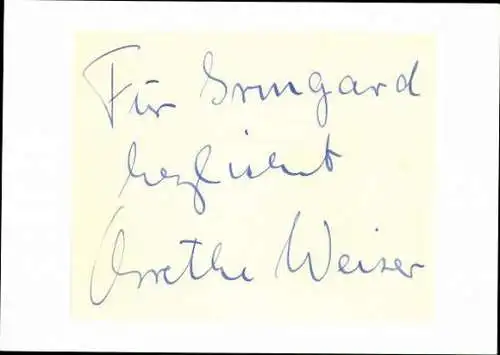 Für Irmgard
herzlichst
Grethe Weiser